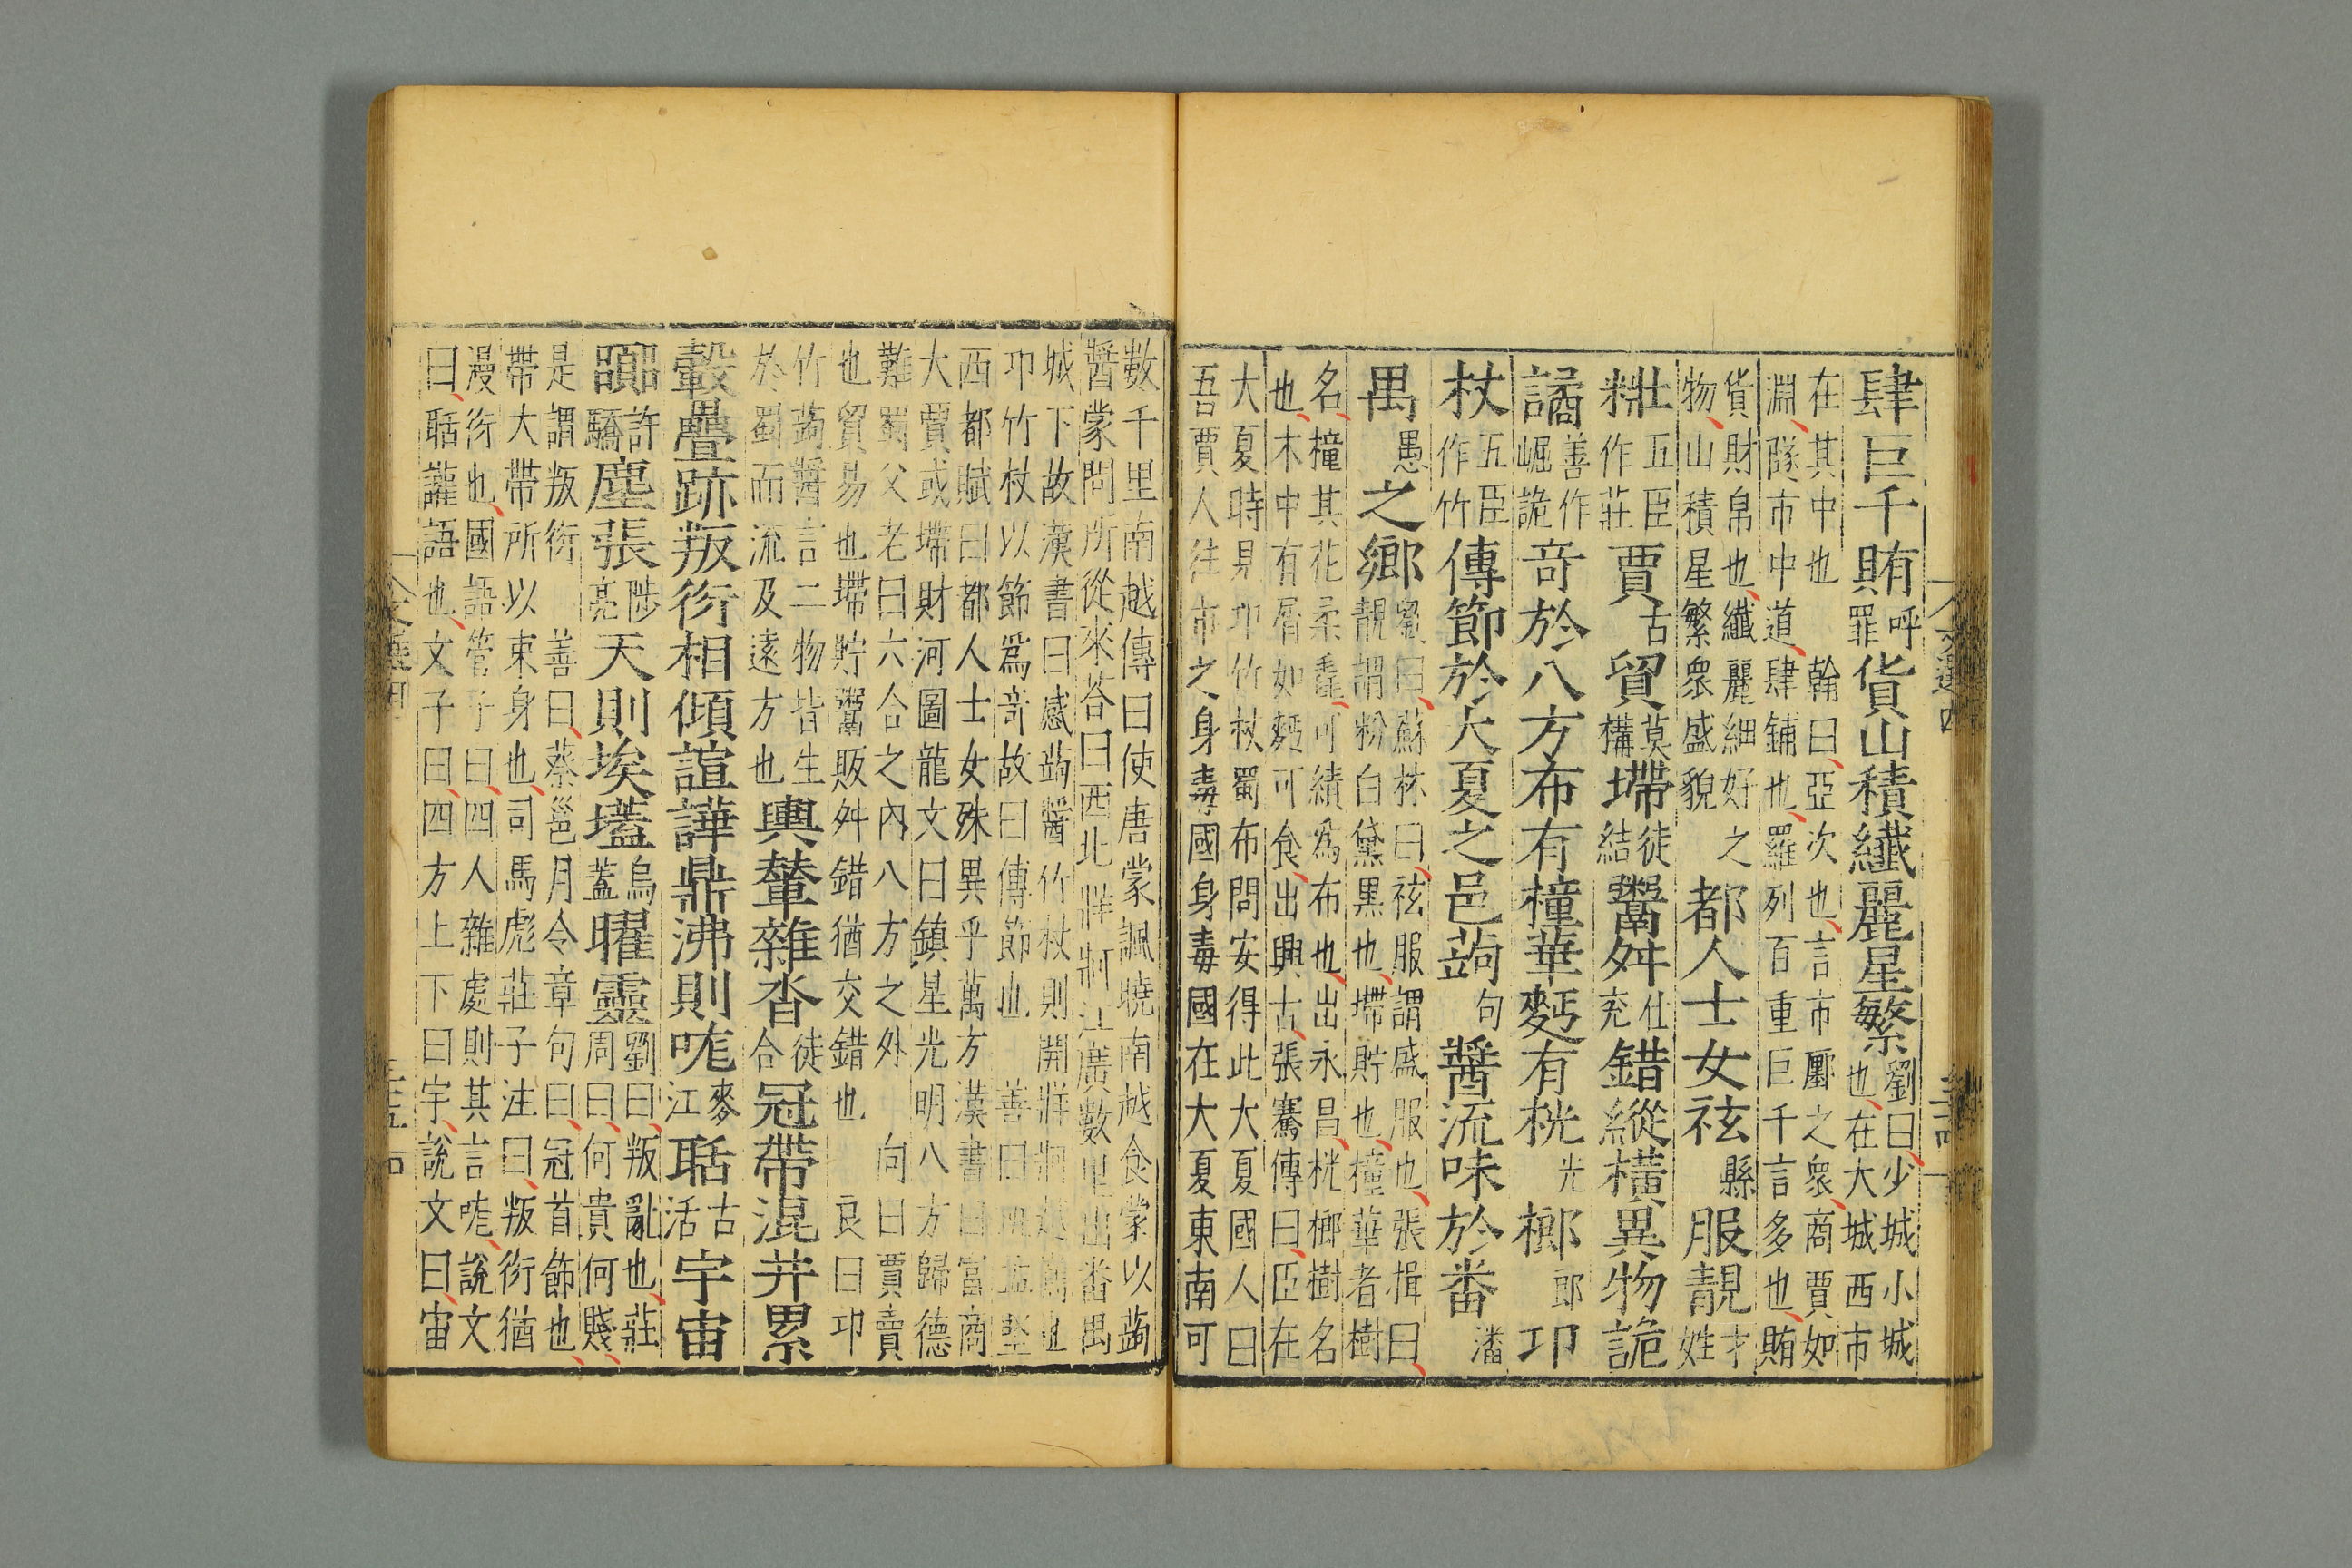 肆巨千賄呼罪貨山積纎麗星繁劉曰少城小城也在大城西市
在其中也翰曰亞次也言市㕓之衆商賈如淵隧市中道肆鋪也羅列百重巨千言多也賄
貨財帛也纎麗細好之物山積星繁衆盛貌都人士女袨縣服靚才姓
糚五臣作莊賈古貿莫構墆徒結鬻舛仕兖錯縱橫異物詭
譎善作崛詭竒於八方布有橦華麪有桄光榔郎卭
杖五臣作竹傳節於大夏之邑蒟句醬流味於番潘
禺愚之鄉劉曰蘇林曰袨服謂盛服也張揖曰靚謂粉白黛黑也墆貯也橦華者樹
名橦其花柔毳可績為布也出永昌桄榔樹名也木中有屑如麪可食出興古張騫傳曰臣在
大夏時見卭竹杖蜀布問安得此大夏國人曰吾賈人往市之身毒國身毒國在大夏東南可
數千里南越傳曰使唐蒙諷曉南越食蒙以蒟醬蒙問所從來荅曰西北牂牁江廣數里出番禺
城下故漢書曰感蒟醬竹杖則開牂牁越嶲也卭竹杖以節爲竒故曰傳節也善曰班孟堅
西都賦曰都人士女殊異乎萬方漢書曰富商大賈或墆財河圖龍文曰鎮星光明八方歸德
難蜀父老曰六合之內八方之外向曰賈賣也貿易也墆貯鬻販舛錯猶交錯也良曰卭
竹蒟醬言二物皆生於蜀而流及遠方也輿輦雜沓徒合冠帶混并累
轂疊跡叛衍相傾諠譁鼎沸則哤麥江聒古活宇宙
嚻許驕塵張陟亮天則埃壒烏蓋曜靈劉曰叛亂也莊周曰何貴何賤
是謂叛衍善曰蔡邕月令章句曰冠首飾也帶大帶所以束身也司馬彪莊子注曰叛衍猶
漫衍也國語管子曰四人雜處則其言哤說文曰聒讙語也文子曰四方上下曰宇說文曰宙